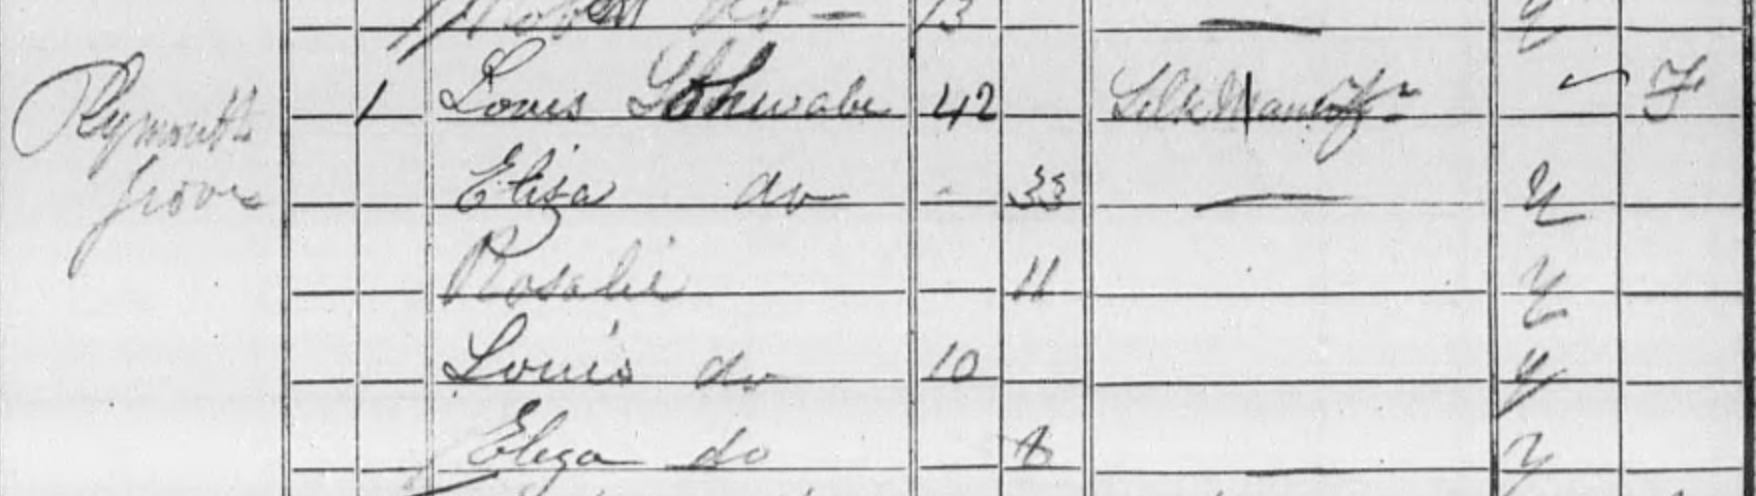 do — 13 — y
Plymouth 1 Louis Schwabe 42 Silk Manufr - F
Grove Eliza do - 33 — y
Rosalie 11 y
Louis do 10 y
Eliza do 8 — y